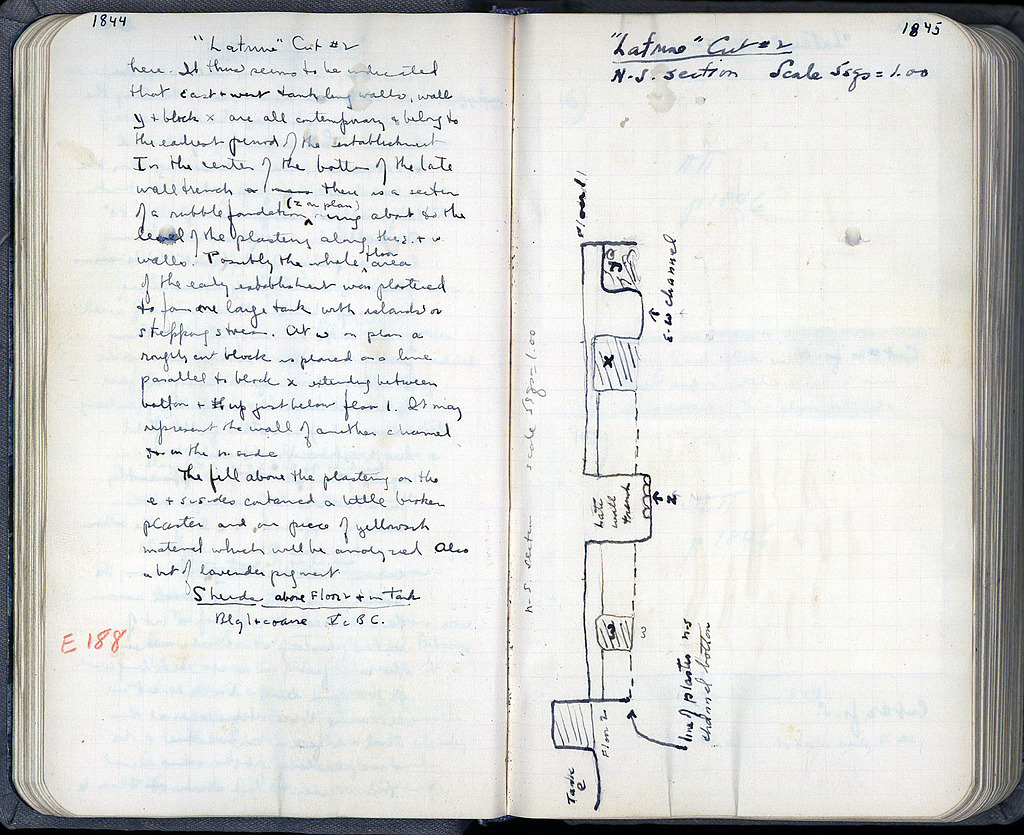 1844
"Latrine" Cut #2
here. It thus seems to be indicated
that east + west tank lug walls, wall
y + block x are all contemporary + belong to
the earliest period of the establishment
In the center of the bottom of the late
wall trench there is a section
of a rubble foundation (z on plan) rising about to the
level of the plastering along the s. + w.
walls. Possibly the whole floor area
of the early establishment was plastered
to form one large tank with islands or
stepping stones. At w on plan a
roughly cut block is placed on a line
parallel to block x extending between
bottom + up just below floor 1. It may
represent the wall of another channel
on the n. side
The fill above the plastering on the
e + s. sides contained a little broken
plaster and one piece of yellowish
material which will be analyzed. Also
a bit of lavender pigment
Sherds above Floor 2 + in Tank
Blgl + coarse V c BC.
E 188
1845
"Latrine" Cut #2
N-S. section Scale 5 sqs = 1.00
N-S. section scale 5 sqs = 1.00
Floor 1
y
E-W channel
x
Late wall trench
z
w
w
line of plaster in s
channel bottom
Floor 2
Tank
e